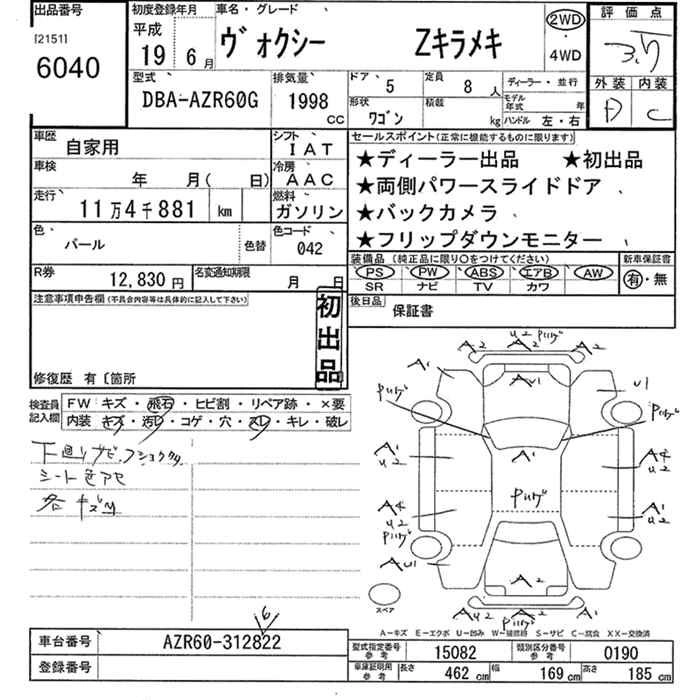 出品番号 初度登録年月 車名・グレード 評価点
[2151]
6040
平成 19 年 6 月 ヴォクシー Zキラメキ 2WD・4WD 3.5
型式 排気量 ドア 5 定員 8 人 ディーラー・並行 外装 内装
DBA-AZR60G 1998 CC 形状 ワゴン 積載 kg モデル年式 年 D C
ハンドル 左・右
車歴 自家用 シフト IAT セールスポイント(正常に機能するものに限ります)
車検 年 月( 日) 冷房 AAC ★ディーラー出品 ★初出品
走行 11万4千881 km 燃料 ガソリン ★両側パワースライドドア
★バックカメラ
色 パール 色替 色コード 042 ★フリップダウンモニター
R券 12,830円 名変通知期限 月 日 装備品(純正品に限り○をつけてください) 新車保証書
PS PW ABS エアB AW 有・無
SR ナビ TV カワ
注意事項申告欄(不具合内容等は具体的に記入して下さい) 初出品 後日品 保証書
修復歴 有〔箇所
検査員記入欄 FW キズ・飛石・ヒビ割・リペア跡・×要
内装 キズ・汚レ・コゲ・穴・スレ・キレ・破レ
下廻りサビ、
シート色アセ
各キズ凹
A2 U2 A2 A2
A1 AU1 U1
A1 U2 A1 A4 U2
A4 U2 A1 U2
AU1 A2
AU2 A2 A1
スペア
A-キズ E-エクボ U-凹み W-補修跡 S-サビ C-腐食 XX-交換済
車台番号 AZR60-312822 6 型式指定番号 参考 15082 類別区分番号 参考 0190
登録番号 車庫証明用 参考 長さ 462 cm 幅 169 cm 高さ 185 cm